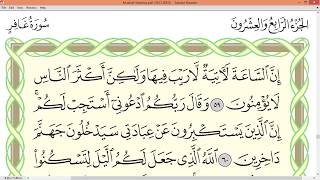 الجزء الرابع والعشرون
سورة غافر
إِنَّ السَّاعَةَ لَآتِيَةٌ لَّا رَيْبَ فِيهَا وَلَٰكِنَّ أَكْثَرَ النَّاسِ
لَا يُؤْمِنُونَ ٥٩ وَقَالَ رَبُّكُمُ ادْعُونِي أَسْتَجِبْ لَكُمْ
إِنَّ الَّذِينَ يَسْتَكْبِرُونَ عَنْ عِبَادَتِي سَيَدْخُلُونَ جَهَنَّمَ
دَاخِرِينَ ٦٠ اللَّهُ الَّذِي جَعَلَ لَكُمُ اللَّيْلَ لِتَسْكُنُوا